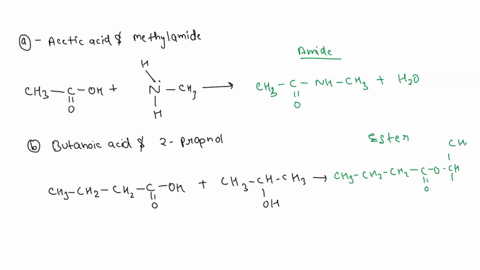 (a) - Acetic acid & methylamide
Amide
CH3-C-OH + H-N-CH3 → CH3-C-NH-CH3 + H2O
O H O
(b) Butanoic acid & 2-propnol
Ester
CH
CH3-CH2-CH2-C-OH + CH3-CH-CH3 → CH3-CH2-CH2-C-O-CH
O OH O